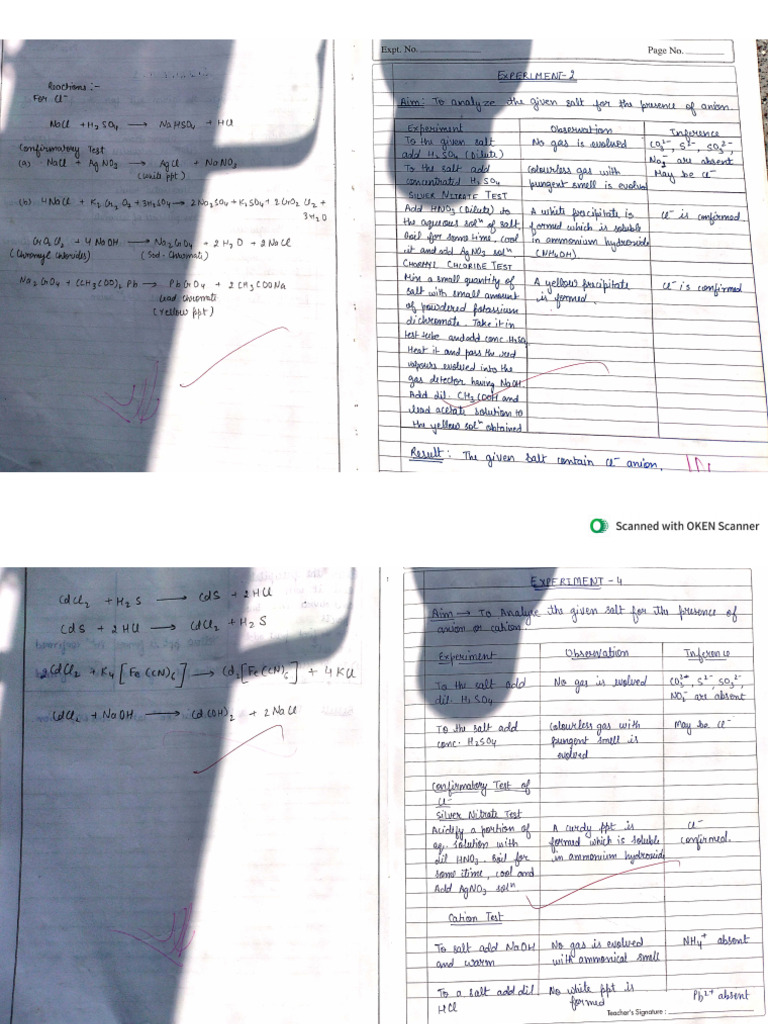 Reactions :-
For Cl⁻
NaCl + H₂SO₄ → NaHSO₄ + HCl
Confirmatory Test
(a) NaCl + AgNO₃ → AgCl + NaNO₃
(white ppt)
(b) 4NaCl + K₂Cr₂O₇ + 3H₂SO₄ → 2Na₂SO₄ + K₂SO₄ + 2CrO₂Cl₂ +
3H₂O
CrO₂Cl₂ + 4NaOH → Na₂CrO₄ + 2H₂O + 2NaCl
(Chromyl chlorides) (Sod. Chromate)
Na₂CrO₄ + (CH₃COO)₂Pb → PbCrO₄ + 2CH₃COONa
Lead chromate
(Yellow ppt)
Expt. No. Page No.
EXPERIMENT-2
Aim: To analyze the given salt for the presence of anion.
Experiment Observation Inference
To the given salt No gas is evolved CO₃²⁻, S²⁻, SO₃²⁻,
add H₂SO₄ (Dilute) NO₂⁻ are absent
To the salt add colourless gas with May be Cl⁻
concentrated H₂SO₄ pungent smell is evolved
SILVER NITRATE TEST
Add HNO₃ (Dilute) to A white precipitate is Cl⁻ is confirmed.
the aqueous solⁿ of salt formed which is soluble
boil for some time, cool in ammonium hydroxide
it and add AgNO₃ solⁿ. (NH₄OH).
CHORMYL CHLORIDE TEST
Mix a small quantity of A yellow precipitate Cl⁻ is confirmed
salt with small amount is formed.
of powdered potassium
dichromate. Take it in
test tube and add conc. H₂SO₄
Heat it and pass the red
vapours evolved into the
gas detector having NaOH.
Add dil. CH₃COOH and
lead acetate solution to
the yellow solⁿ obtained
Result: The given salt contain Cl⁻ anion.
Scanned with OKEN Scanner
CdCl₂ + H₂S → CdS + 2HCl
CdS + 2HCl → CdCl₂ + H₂S
2CdCl₂ + K₄[Fe(CN)₆] → Cd₂[Fe(CN)₆] + 4KCl
CdCl₂ + NaOH → Cd(OH)₂ + 2NaCl
EXPERIMENT - 4
Aim → To Analyze the given salt for the presence of
anion or cation.
Experiment Observation Inference
To the salt add No gas is evolved CO₃²⁻, S²⁻, SO₃²⁻,
dil. H₂SO₄ NO₂⁻ are absent
To the salt add Colourless gas with May be Cl⁻
conc. H₂SO₄ pungent smell is
evolved
Confirmatory Test of
Cl⁻
Silver Nitrate Test
Acidify a portion of A curdy ppt is Cl⁻
aq. solution with formed which is soluble confirmed.
dil HNO₃. Boil for in ammonium hydroxide
some time, cool and
Add AgNO₃ solⁿ.
Cation Test
To salt add NaOH No gas is evolved NH₄⁺ absent
and warm with ammonical smell
To a salt add dil No white ppt is Pb²⁺ absent
HCl formed
Teacher's Signature :